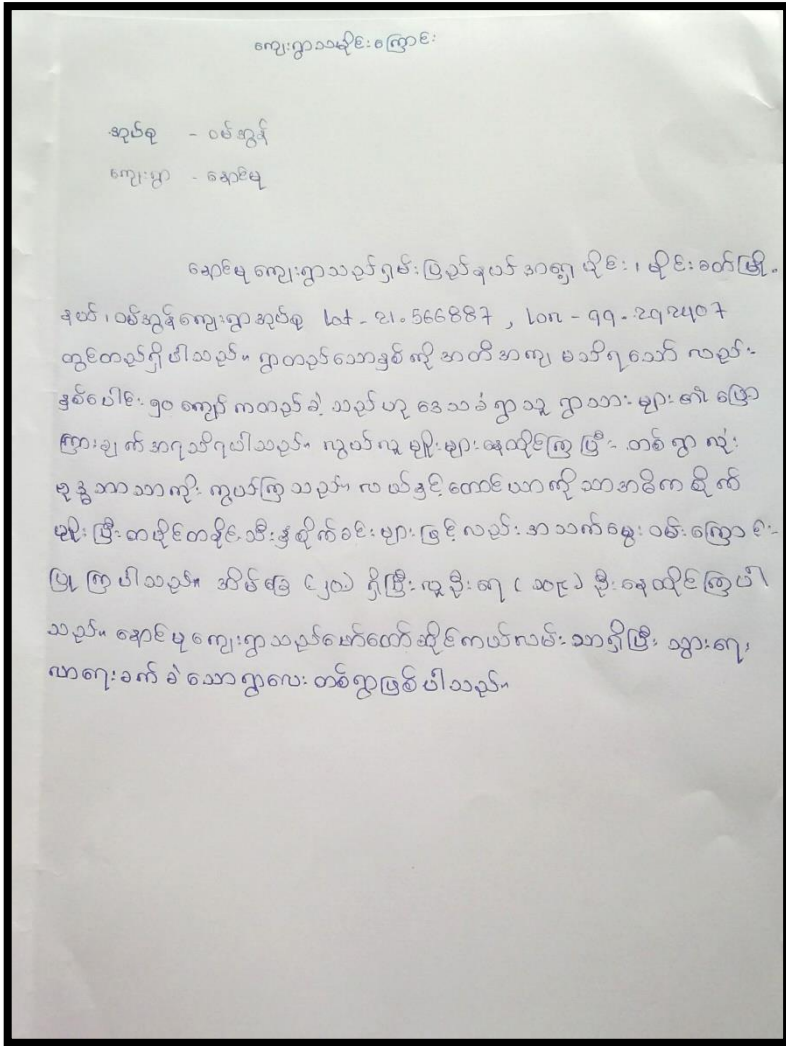 ကျေးရွာသမိုင်းကြောင်း
အုပ်စု - ဝမ်အွန်
ကျေးရွာ - နောင်မု
နောင်မုကျေးရွာသည်ရှမ်းပြည်နယ် အရှေ့ပိုင်း၊ မိုင်းခတ်မြို့
နယ်၊ ဝမ်အွန်ကျေးရွာအုပ်စု lat - 21.566887 , lon - 99.292407
တွင်တည်ရှိပါသည်။ ရွာတည်သောနှစ်ကို အတိအကျ မသိရသော် လည်း
နှစ်ပေါင်း ၅၀ ကျော် ကတည်ခဲ့ သည်ဟု ဒေသခံရွာသူ ရွာသား များ၏ ပြော
ကြားချက်အရသိရပါသည်။ လူမျိုးများနေထိုင်ကြပြီး တစ်ရွာ လုံး
ဗုဒ္ဓဘာသာကိုး ကွယ်ကြသည်။ လယ်နှင့်တောင်ယာကိုသာအဓိကစိုက်
မျိုးပြီးတပိုင်တနိုင်သီးနှံစိုက်ခင်းများဖြင့်လည်း အသက်မွေး ဝမ်းကြောင်း
ပြုကြပါသည်။ အိမ်ခြေ (၂၁) ရှိပြီးလူဦးရေ ဦးနေထိုင်ကြပါ
သည်။ နောင်မုကျေးရွာသည်မော်တော်ဆိုင်ကယ်လမ်းသာရှိပြီး သွားရေး
လာရေးခက်ခဲသောရွာလေးတစ်ရွာဖြစ်ပါသည်။